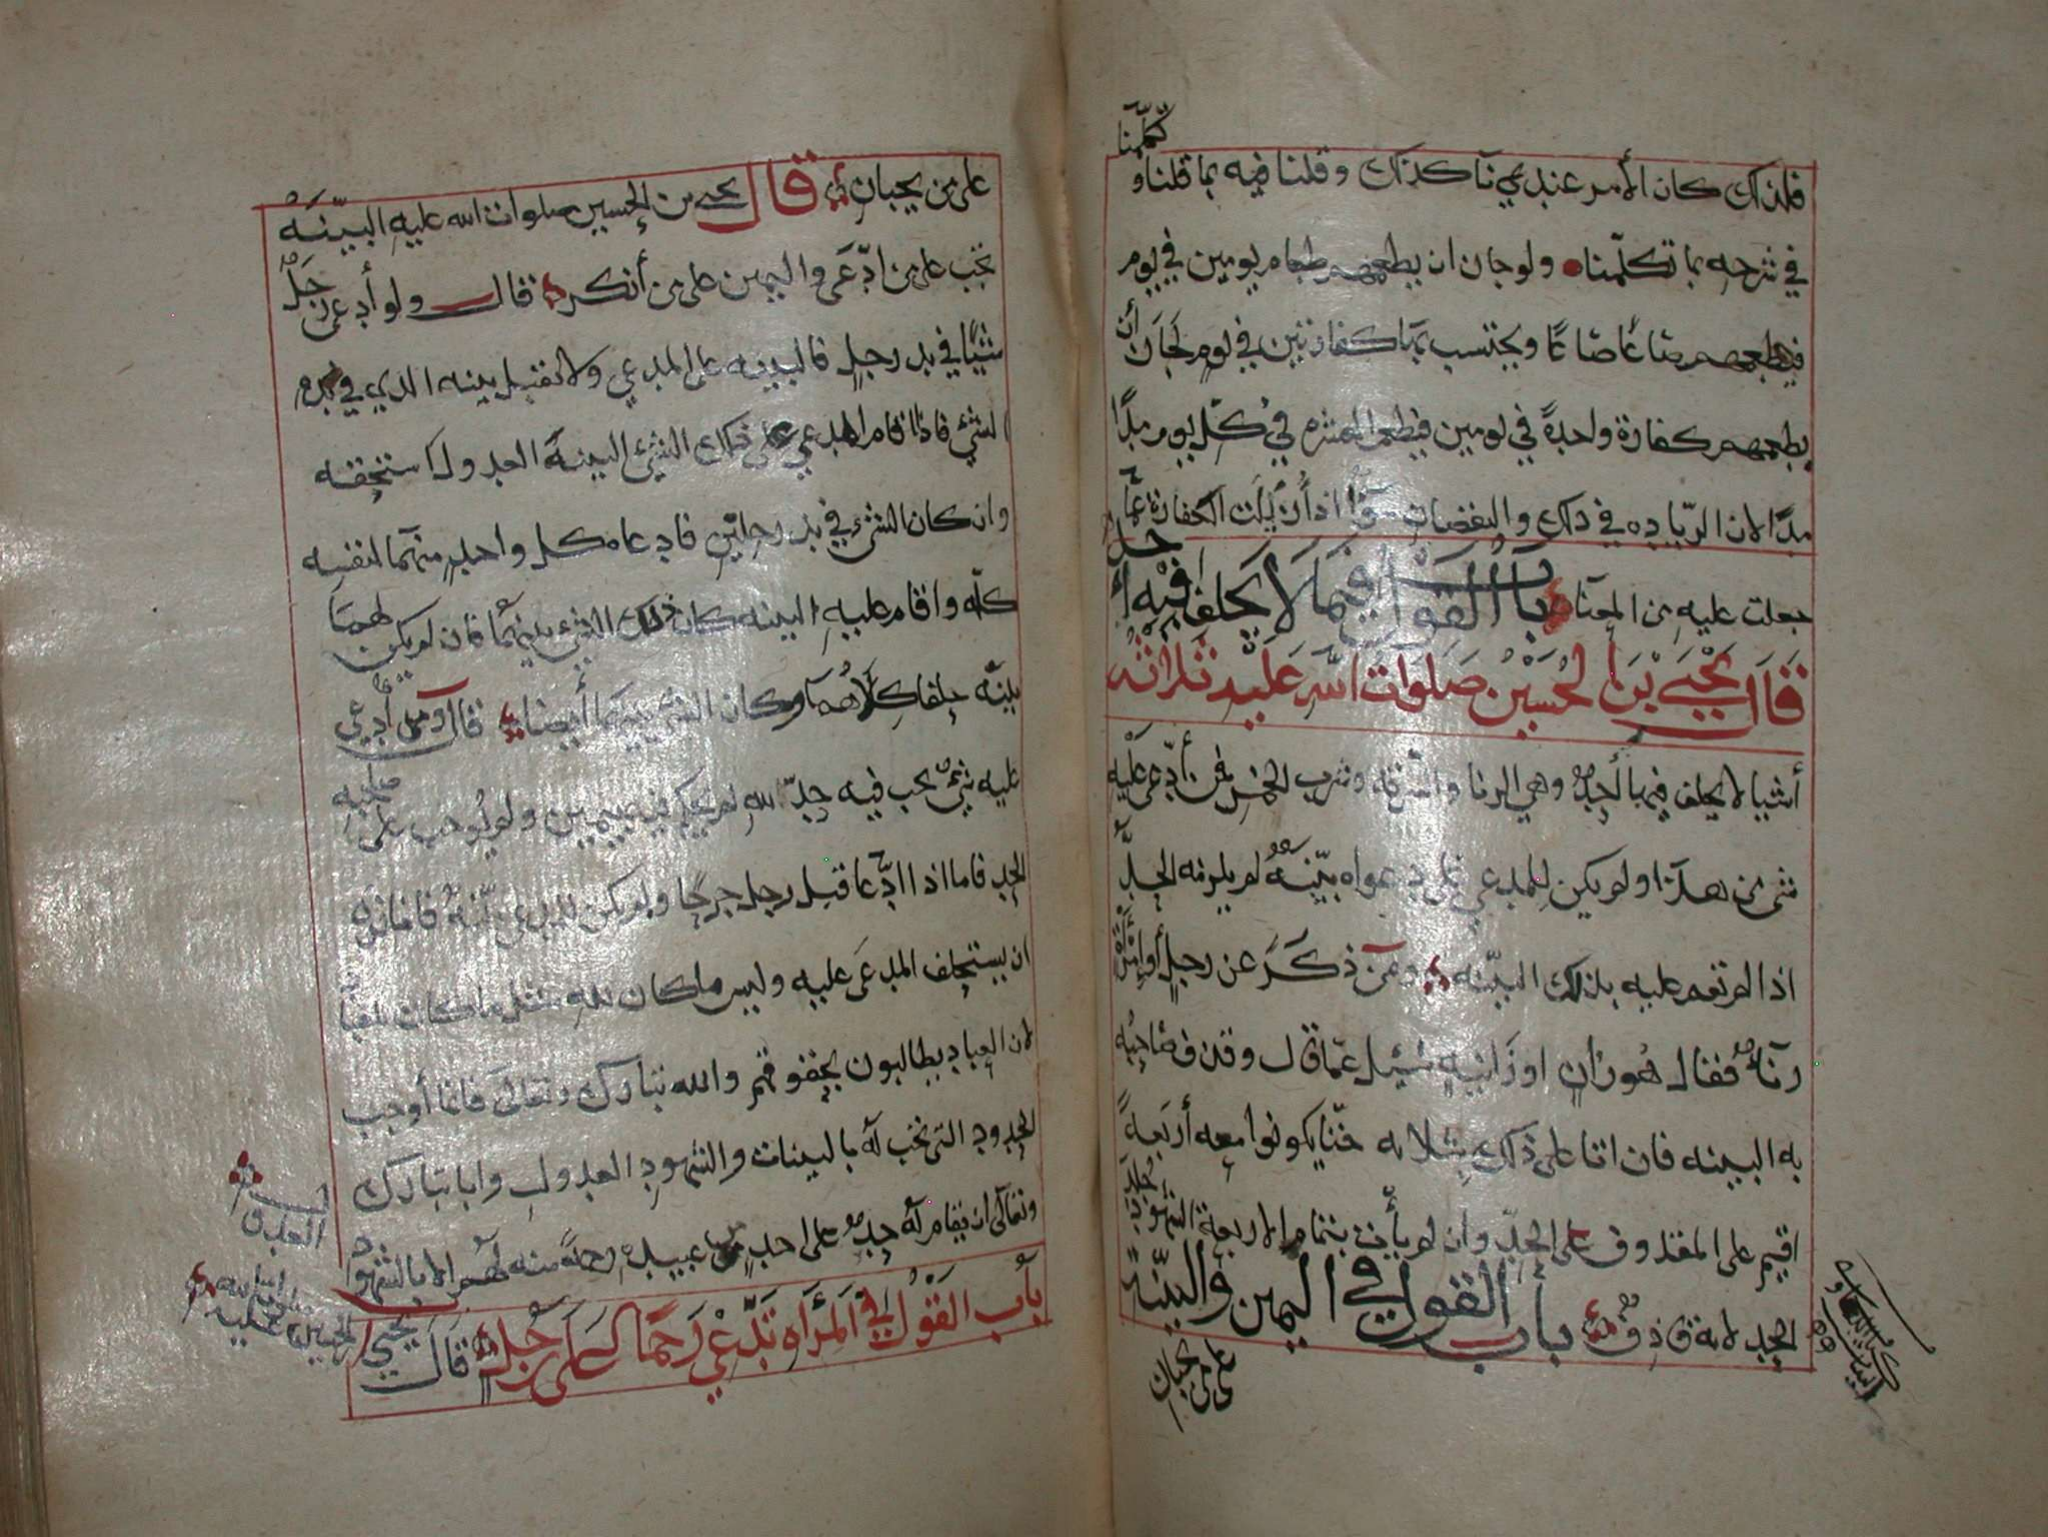 فلذلك كان الأمر عندي نا كذلك وقلنا فيه بما قلنا و تكلمنا
في شرحه بما تكلمنا ولو جاز ان يطعمهم طعام يومين في يوم
فيطعمهم صاعًا صاعًا ويحتسب بها كفارتين في يوم لجاز أن
يطعمهم كفارة واحدة في يومين فيطعم العشرة في كل يوم مدًا
مدًا لان الزياده في ذلك والنقصان اذا أزيلت الكفارة عما
جعلت عليه من المعنا باب القول فيما لا يحلف فيه أحد
قال يحيى بن الحسين صلوات الله عليه ثلاثة
أشيا لا يحلف فيها أحد وهي الزنا والسرقة وشرب الخمر فمن أدعى عليه
شي من هذا ولم يكن للمدعي على دعواه بينة لم يلزمه الحد
اذا لم تقم عليه بذلك البينه ومن ذكر عن رجل أو امرأة
زناة فقال هو زان او زانية سئل عما قال وقذف صاحبه
به البينه فان اتا على ذلك بثلاثه حتا يكونوا معه أربعة
اقيم على المقذوف الحد وان لم يأت بتمام الاربعة الشهود جلد
الحد لانه قاذف باب القول في اليمين والبينة
على من يجبان
على من يجبان قال يحيى بن الحسين صلوات الله عليه البينة
تجب على من ادعى واليمين على من أنكر قال ولو أدعى رجل
شيئا في يد رجل فالبينه على المدعي ولا تقبل بينه الذي في يده
الشي فاذا اقام المدعي على ذلك الشي البينة العدول استحقه
وان كان الشي في يد رجلين فادعاه كل واحد منهما لنفسه
كله واقام عليه البينه كان ذلك الشي بينهما فان لم يكن لهما
بينة حلفا كلاهما وكان الشي بينهما أيضا قال ومن أدعي
عليه شي يجب فيه حد لله لم يحكم فيه بيمين ولم يوجب على صاحبه
الحد فاما اذا ادعا قبل رجل جرحا ولم يكن للمدعي بينة فانا نرى
ان يستحلف المدعى عليه وليس ما كان لله مثل ما كان للعباد
لان العباد يطالبون بحقوقهم والله تبارك وتعالى فانما أوجب
الحدود التي تجب له بالبينات والشهود العدول وابا تبارك
وتعالى ان يقام له حد على احد من عبيده رحمة منه لهم الا بالشهود
العدول
باب القول في المرأه تدعي رحما لها على رجل قال يحيى بن
الحسين صلوات الله عليه